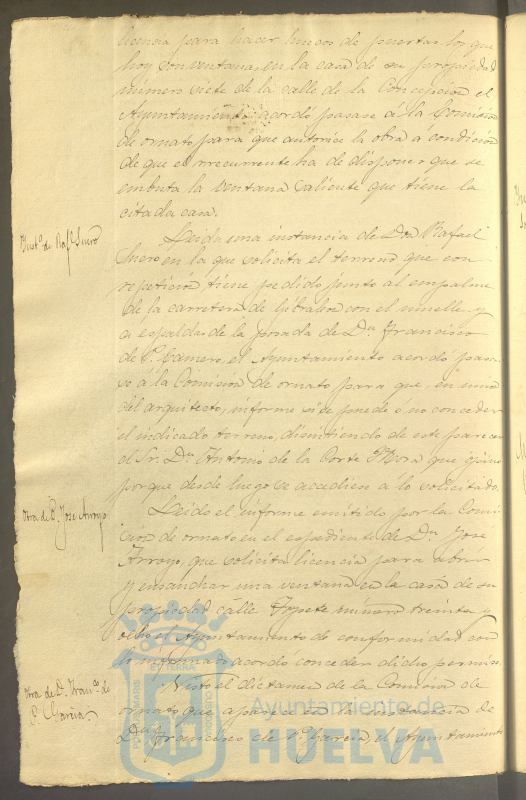 licencia para hacer huecos de puertas los que
hoy son ventanas, en la casa de su propiedad
número siete de la calle de la Concepción el
Ayuntamiento acordó pasase á la Comisión
de ornato para que autorice la obra á condición
de que el recurrente ha de disponer que se
embuta la ventana saliente que tiene la
citada casa.
Inst.ª de Raf.l
Leida una instancia de Don Rafael
en la que solicita el terreno que con
repetición tiene pedido junto al empalme
de la carretera de Gibraleon con el muelle y
a espaldas de la posada de Dn Francisco
de P. Camero, el Ayuntamiento acordó pasa-
se á la Comisión de ornato para que, en union
del arquitecto, informe si se puede ó no conceder
el indicado terreno, disintiendo de este parecer
el Sr. Dn Antonio de la Corte Mora que opinó
porque desde luego se accediese a lo solicitado.
Otra de D. Jose Arroyo
Leido el informe emitido por la Comi-
sion de ornato en el espediente de Dn Jose
Arroyo, que solicita licencia para abrir
y ensanchar una ventana en la casa de su
propiedad calle número treinta y
ocho el Ayuntamiento de conformidad con
lo informado acordó conceder dicho permiso.
Otra de D. Fran.co de
P. Garcia.
Visto el dictamen de la Comision de
ornato que aparece en la instancia de
Dn Francisco de P. Garcia, el Ayuntamiento
Ayuntamiento de
HUELVA